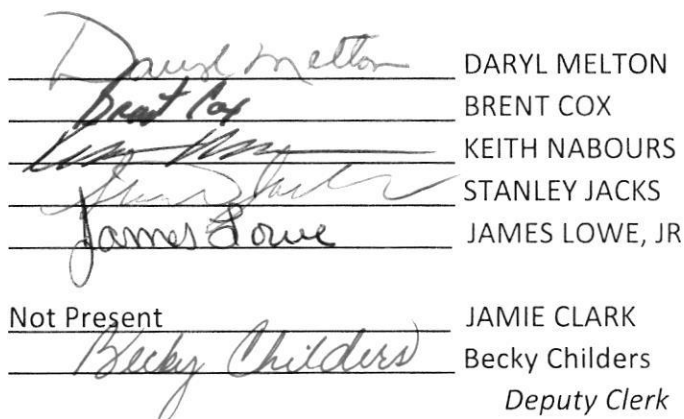 Daryl Melton DARYL MELTON
Brent Cox BRENT COX
KEITH NABOURS
STANLEY JACKS
James Lowe JAMES LOWE, JR
Not Present JAMIE CLARK
Becky Childers Becky Childers
Deputy Clerk